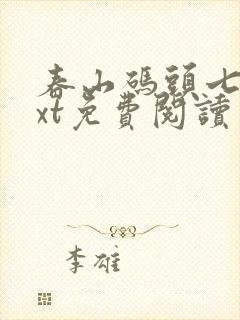 春山碼頭七
xt免費閱讀
李雄